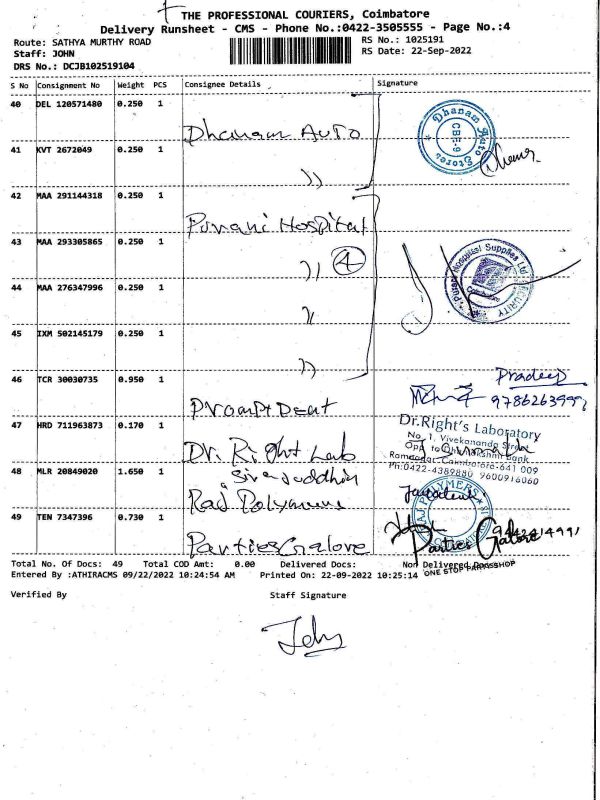 THE PROFESSIONAL COURIERS, Coimbatore
Delivery Runsheet - CMS - Phone No.:0422-3505555 - Page No.:4
Route: SATHYA MURTHY ROAD
RS No.: 1025191
Staff: JOHN
RS Date: 22-Sep-2022
DRS No.: DCJB102519104
S No Consignment No Weight PCS Consignee Details Signature
40 DEL 120571480 0.250 1
Dhanam Auto
Dhanam Auto Stores
CBE-9
41 KVT 2672049 0.250 1
))
42 MAA 291144318 0.250 1
Purani Hospital
43 MAA 293305865 0.250 1
)) 4
Hospital Supplies Ltd
SECURITY
44 MAA 276347996 0.250 1
))
45 IXM 502145179 0.250 1
))
46 TCR 30030735 0.950 1
Prompt Dent
Pradeep
47 HRD 711963873 0.170 1
Dr. Right Lab
Dr.Right's Laboratory
No. 1, Vivekananda Street
Coimbatore-641 009
Ph:0422-4389880 9600916060
48 MLR 20849020 1.650 1
Raj Polymers
RAJ POLYMERS
49 TEN 7347396 0.730 1
Parties Galore
Parties Galore
ONE STOP PARTY SHOP
Total No. Of Docs: 49 Total COD Amt: 0.00 Delivered Docs: Non Delivered Docs:
Entered By :ATHIRACMS 09/22/2022 10:24:54 AM Printed On: 22-09-2022 10:25:14
Verified By Staff Signature
John